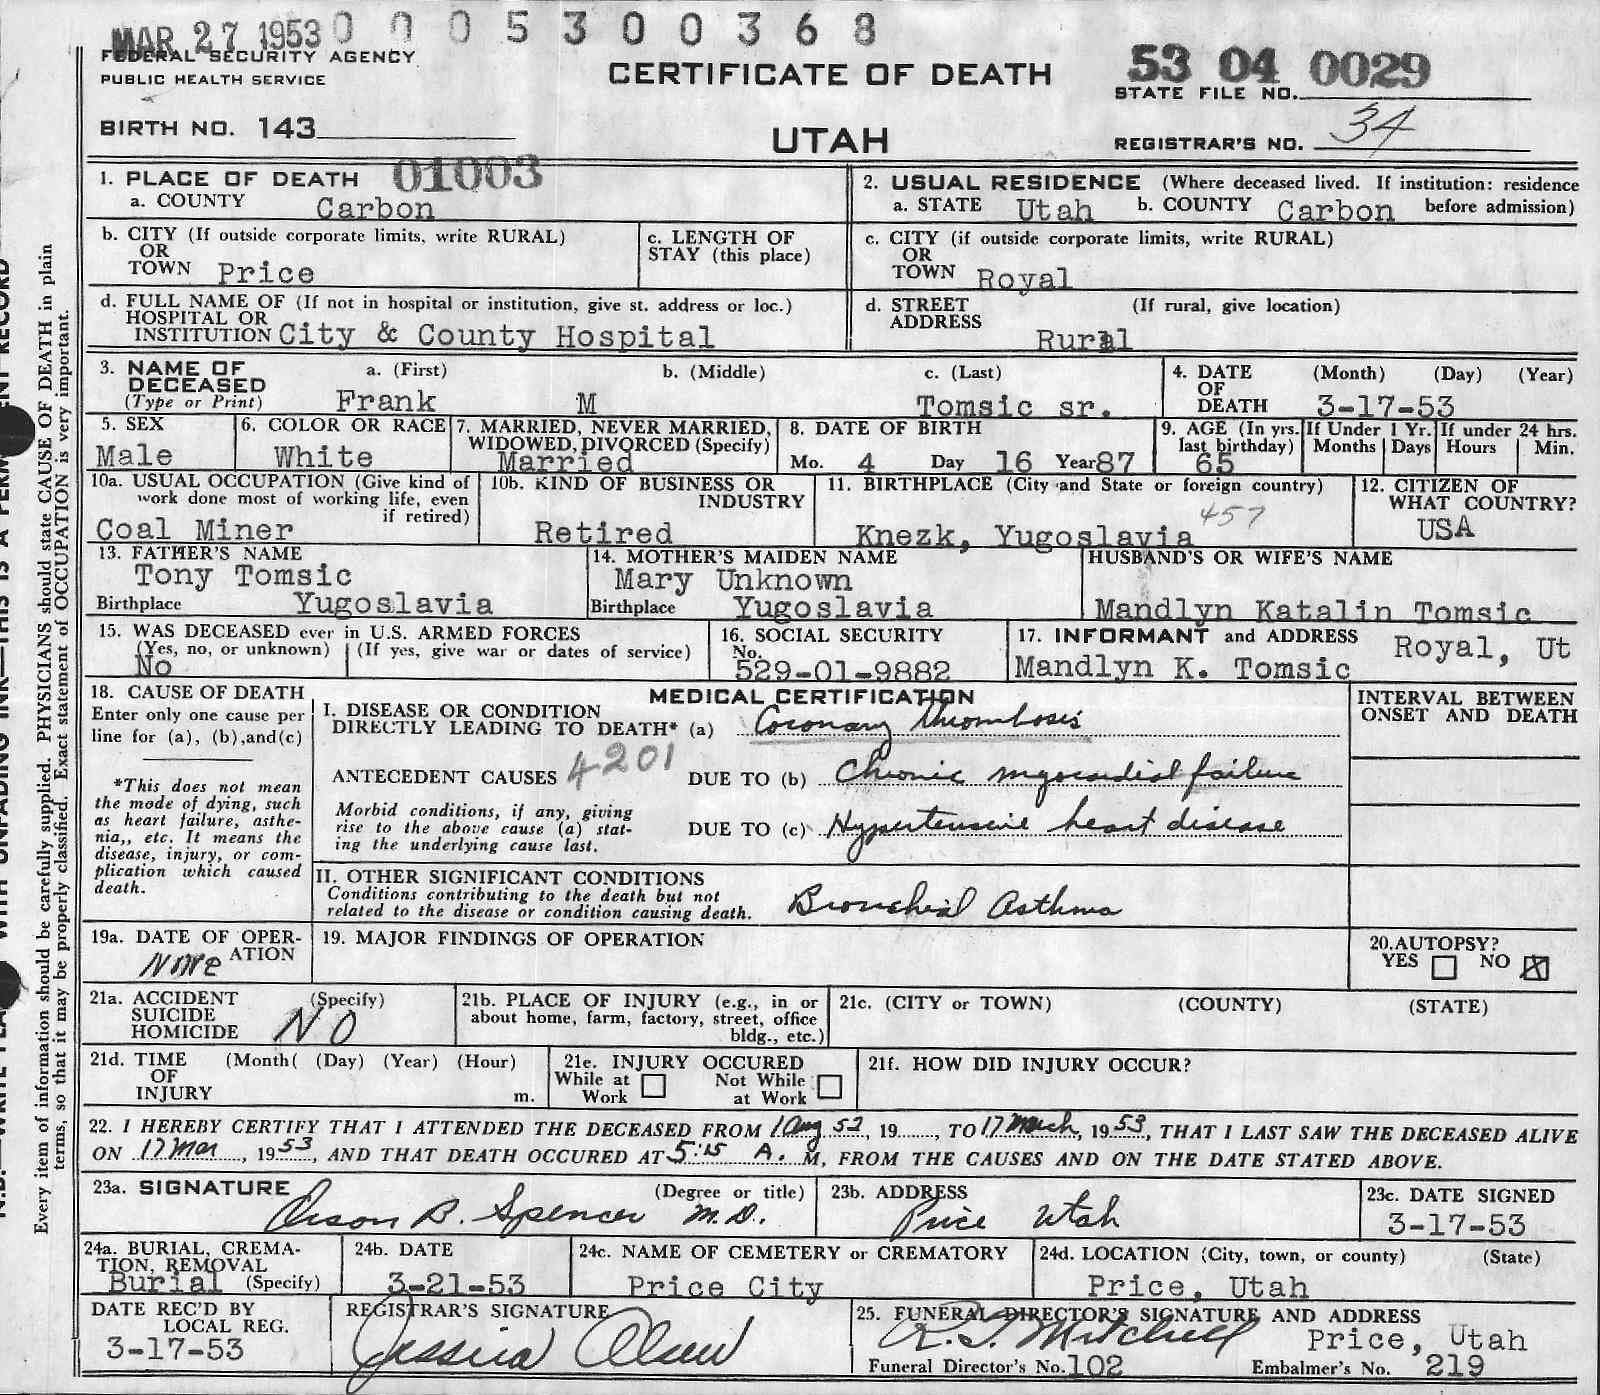 MAR 27 1953 0 0 0 5 3 0 0 3 6 8
FEDERAL SECURITY AGENCY
PUBLIC HEALTH SERVICE
CERTIFICATE OF DEATH
53 04 0029
STATE FILE NO.
BIRTH NO. 143
UTAH
REGISTRAR'S NO. 34
1. PLACE OF DEATH 01003
a. COUNTY Carbon
2. USUAL RESIDENCE (Where deceased lived. If institution: residence
a. STATE Utah b. COUNTY Carbon before admission)
b. CITY (If outside corporate limits, write RURAL)
OR
TOWN Price
c. LENGTH OF
STAY (this place)
c. CITY (if outside corporate limits, write RURAL)
OR
TOWN Royal
d. FULL NAME OF (If not in hospital or institution, give st. address or loc.)
HOSPITAL OR
INSTITUTION City & County Hospital
d. STREET (If rural, give location)
ADDRESS
Rural
3. NAME OF a. (First) b. (Middle) c. (Last)
DECEASED
(Type or Print) Frank M Tomsic sr.
4. DATE (Month) (Day) (Year)
OF
DEATH 3-17-53
5. SEX
Male
6. COLOR OR RACE
White
7. MARRIED, NEVER MARRIED,
WIDOWED, DIVORCED (Specify)
Married
8. DATE OF BIRTH
Mo. 4 Day 16 Year 87
9. AGE (In yrs. If Under 1 Yr. If under 24 hrs.
last birthday) Months Days Hours Min.
65
10a. USUAL OCCUPATION (Give kind of
work done most of working life, even
if retired)
Coal Miner
10b. KIND OF BUSINESS OR
INDUSTRY
Retired
11. BIRTHPLACE (City and State or foreign country)
457
Knezk, Yugoslavia
12. CITIZEN OF
WHAT COUNTRY?
USA
13. FATHER'S NAME
Tony Tomsic
Birthplace Yugoslavia
14. MOTHER'S MAIDEN NAME
Mary Unknown
Birthplace Yugoslavia
HUSBAND'S OR WIFE'S NAME
Mandlyn Katalin Tomsic
15. WAS DECEASED ever in U.S. ARMED FORCES
(Yes, no, or unknown) (If yes, give war or dates of service)
No
16. SOCIAL SECURITY
No.
529-01-9882
17. INFORMANT and ADDRESS Royal, Ut
Mandlyn K. Tomsic
18. CAUSE OF DEATH
Enter only one cause per
line for (a), (b), and (c)
*This does not mean
the mode of dying, such
as heart failure, asthe-
nia,, etc. It means the
disease, injury, or com-
plication which caused
death.
MEDICAL CERTIFICATION
INTERVAL BETWEEN
ONSET AND DEATH
I. DISEASE OR CONDITION
DIRECTLY LEADING TO DEATH* (a) Coronary Thrombosis
4201
ANTECEDENT CAUSES DUE TO (b) Chronic myocardial failure
Morbid conditions, if any, giving
rise to the above cause (a) stat-
ing the underlying cause last.
DUE TO (c) Hypertensive heart disease
II. OTHER SIGNIFICANT CONDITIONS
Conditions contributing to the death but not
related to the disease or condition causing death. Bronchial Asthma
19a. DATE OF OPER-
ATION
NONE
19. MAJOR FINDINGS OF OPERATION
20. AUTOPSY?
YES NO X
21a. ACCIDENT (Specify)
SUICIDE
HOMICIDE NO
21b. PLACE OF INJURY (e.g., in or
about home, farm, factory, street, office
bldg., etc.)
21c. (CITY or TOWN) (COUNTY) (STATE)
21d. TIME (Month( (Day) (Year) (Hour)
OF
INJURY m.
21e. INJURY OCCURED
While at Not While
Work at Work
21f. HOW DID INJURY OCCUR?
22. I HEREBY CERTIFY THAT I ATTENDED THE DECEASED FROM 1 Aug 52, 19......, TO 17 March, 1953, THAT I LAST SAW THE DECEASED ALIVE
ON 17 Mar, 1953, AND THAT DEATH OCCURED AT 5:15 A. M, FROM THE CAUSES AND ON THE DATE STATED ABOVE.
23a. SIGNATURE (Degree or title)
Orson B. Spencer M.D.
23b. ADDRESS
Price Utah
23c. DATE SIGNED
3-17-53
24a. BURIAL, CREMA-
TION, REMOVAL
Burial (Specify)
24b. DATE
3-21-53
24c. NAME OF CEMETERY or CREMATORY
Price City
24d. LOCATION (City, town, or county) (State)
Price, Utah
DATE REC'D BY
LOCAL REG.
3-17-53
REGISTRAR'S SIGNATURE
Jessica Olsen
25. FUNERAL DIRECTOR'S SIGNATURE AND ADDRESS
R. T. Mitchell Price, Utah
Funeral Director's No. 102 Embalmer's No. 219
Every item of information should be carefully supplied. PHYSICIANS should state CAUSE OF DEATH in plain
terms, so that it may be properly classified. Exact statement of OCCUPATION is very important.